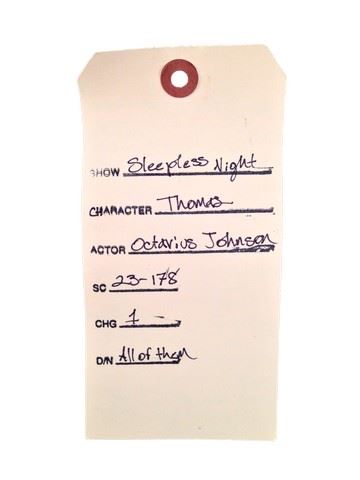 SHOW Sleepless Night
CHARACTER Thomas
ACTOR Octavius Johnson
SC 23-178
CHG 1
D/N All of them